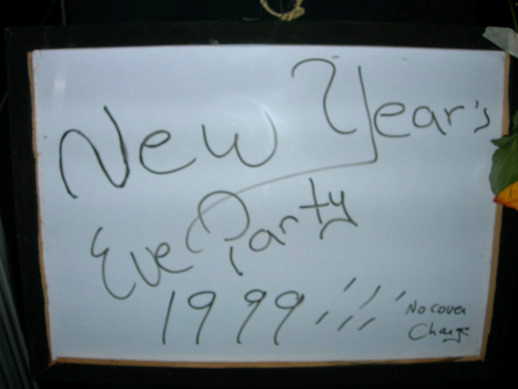 New Year's
Eve Party
1999!!!
No cover
Charge